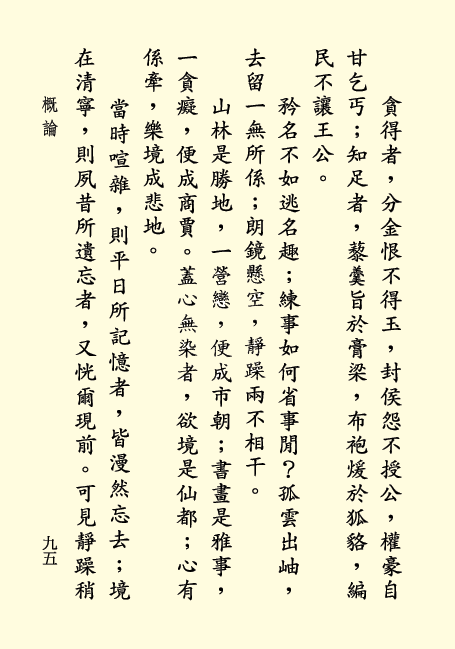 貪得者，分金恨不得玉，封侯怨不授公，權豪自
甘乞丐；知足者，藜羹旨於膏粱，布袍煖於狐貉，編
民不讓王公。
矜名不如逃名趣；練事如何省事閒？孤雲出岫，
去留一無所係；朗鏡懸空，靜躁兩不相干。
山林是勝地，一營戀，便成市朝；書畫是雅事，
一貪癡，便成商賈。蓋心無染者，欲境是仙都；心有
係牽，樂境成悲地。
當時喧雜，則平日所記憶者，皆漫然忘去；境
在清寧，則夙昔所遺忘者，又恍爾現前。可見靜躁稍
概論
九五